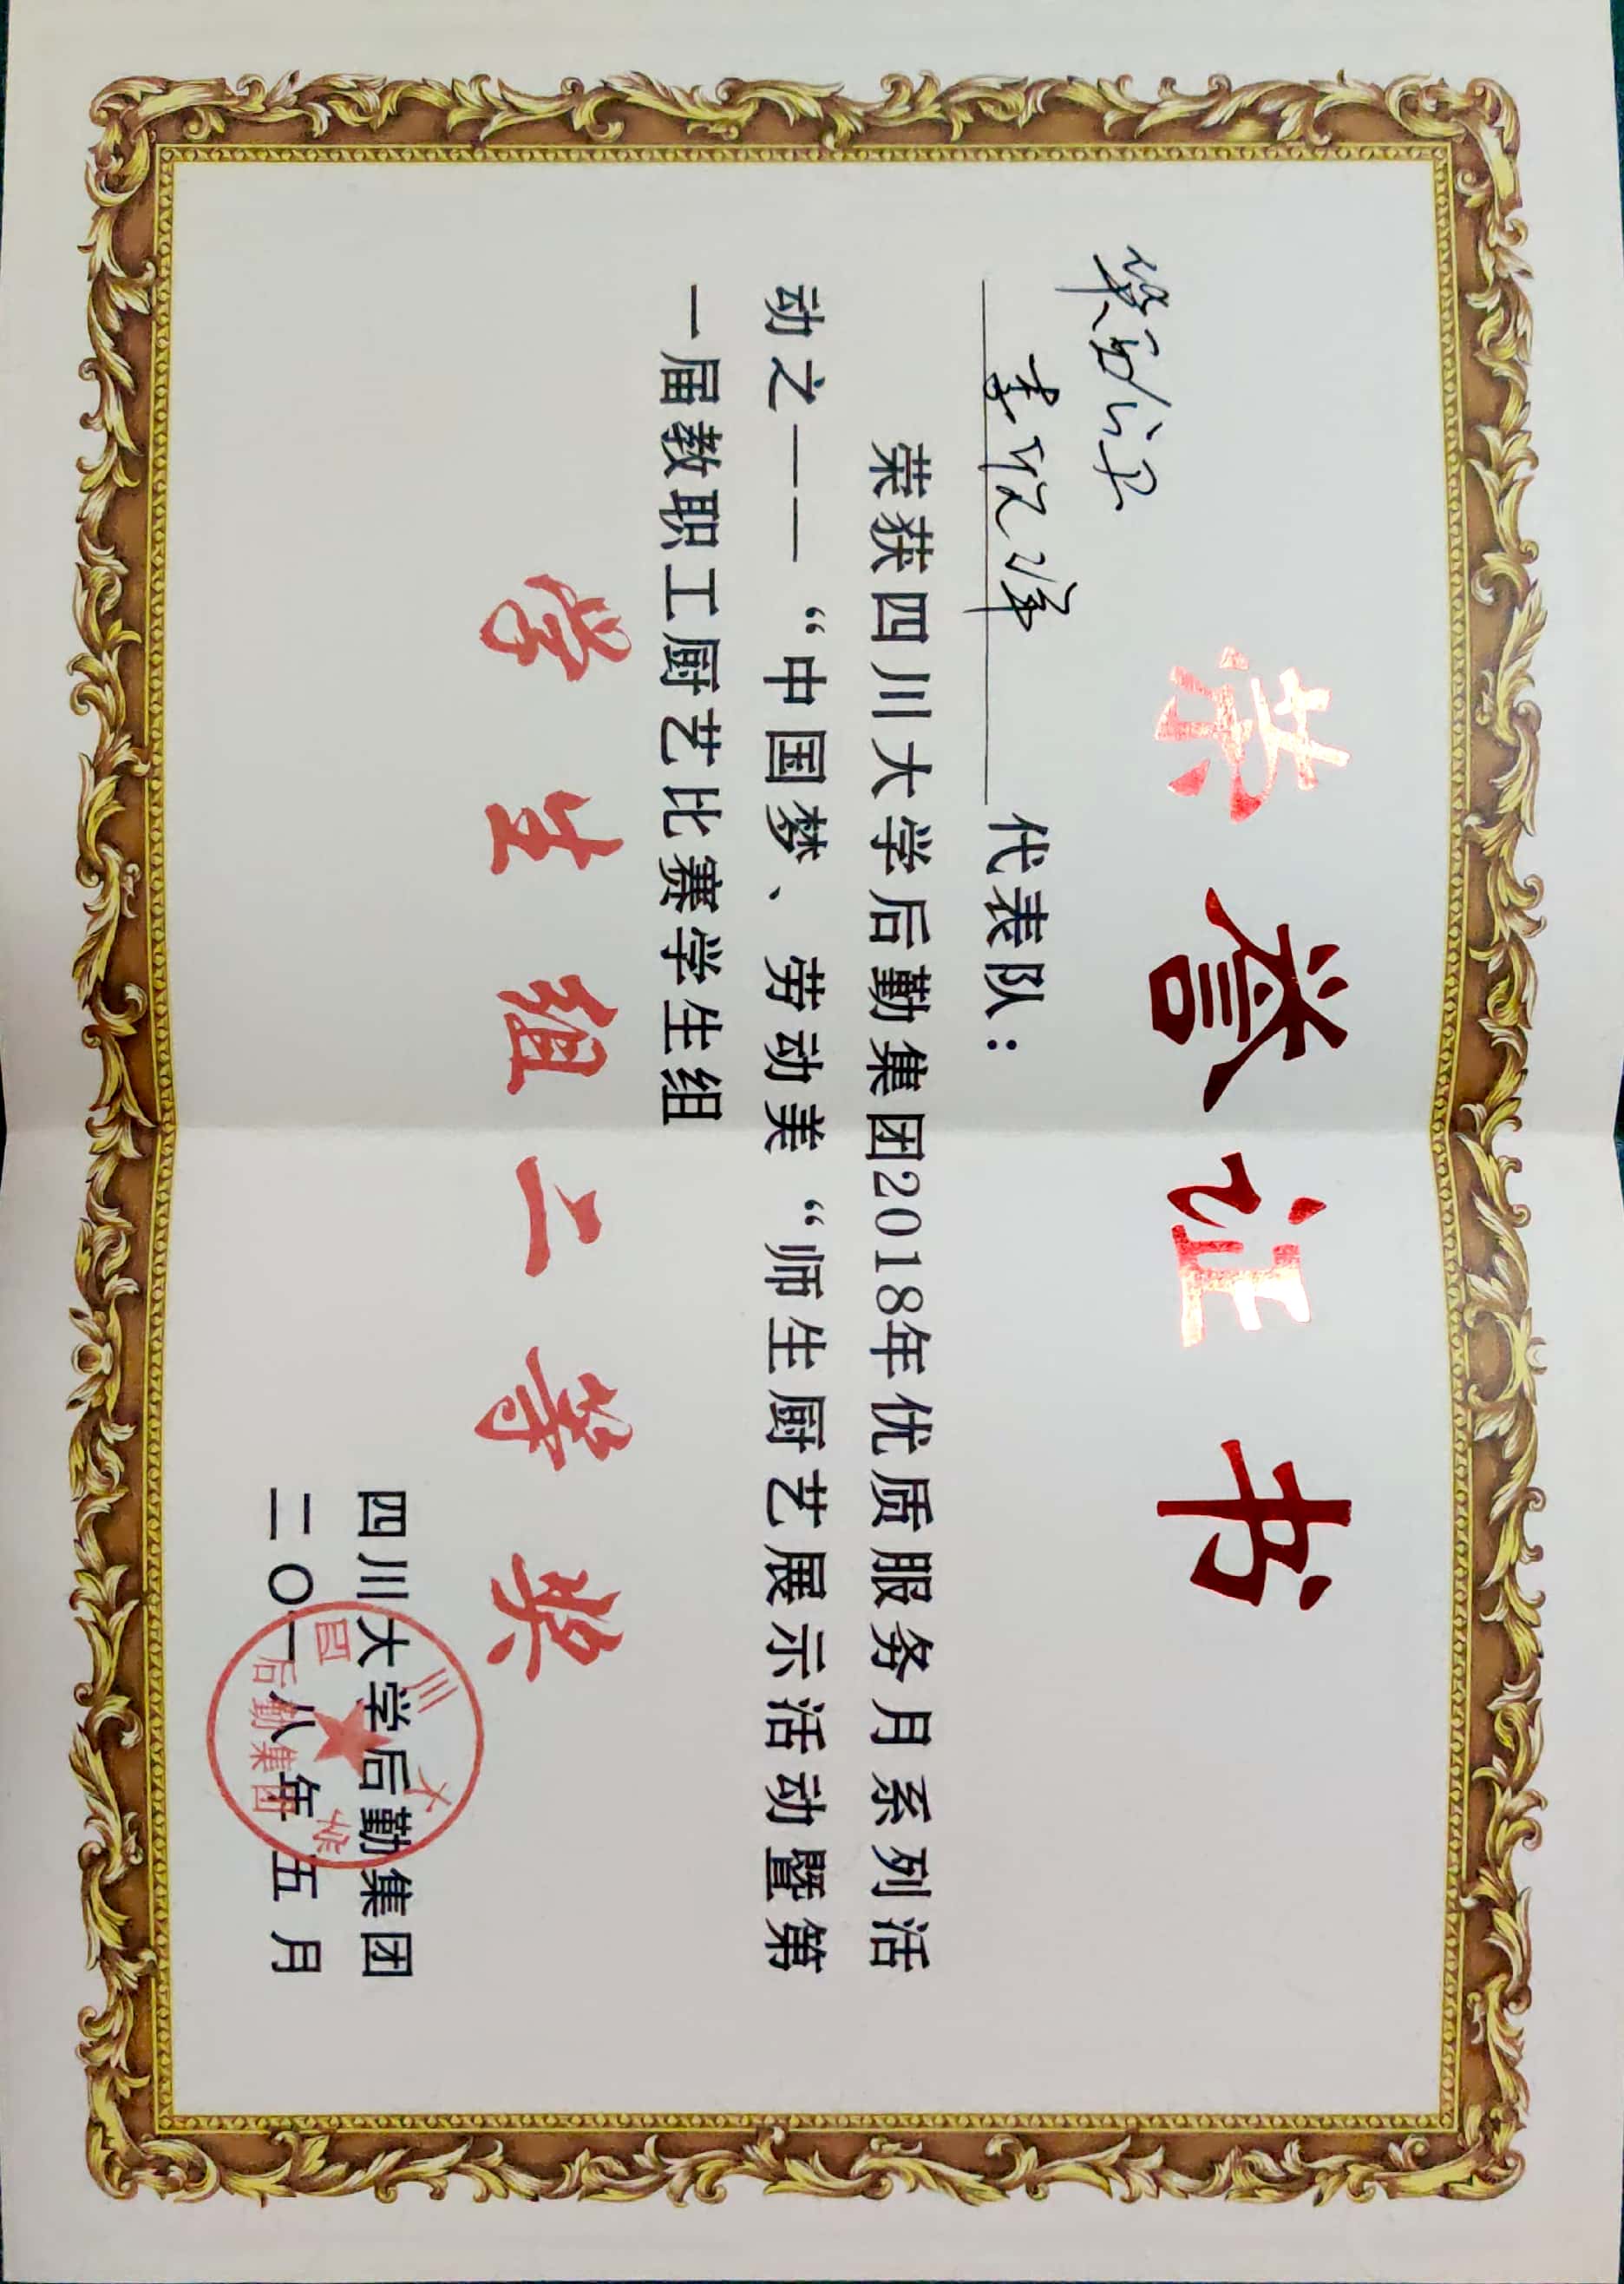 荣誉证书
代表队：
荣获四川大学后勤集团2018年优质服务月系列活
动之——“中国梦、劳动美“师生厨艺展示活动暨第
一届教职工厨艺比赛学生组
学生组二等奖
四川大学后勤集团
二〇一八年五月
四川大学
后勤集团